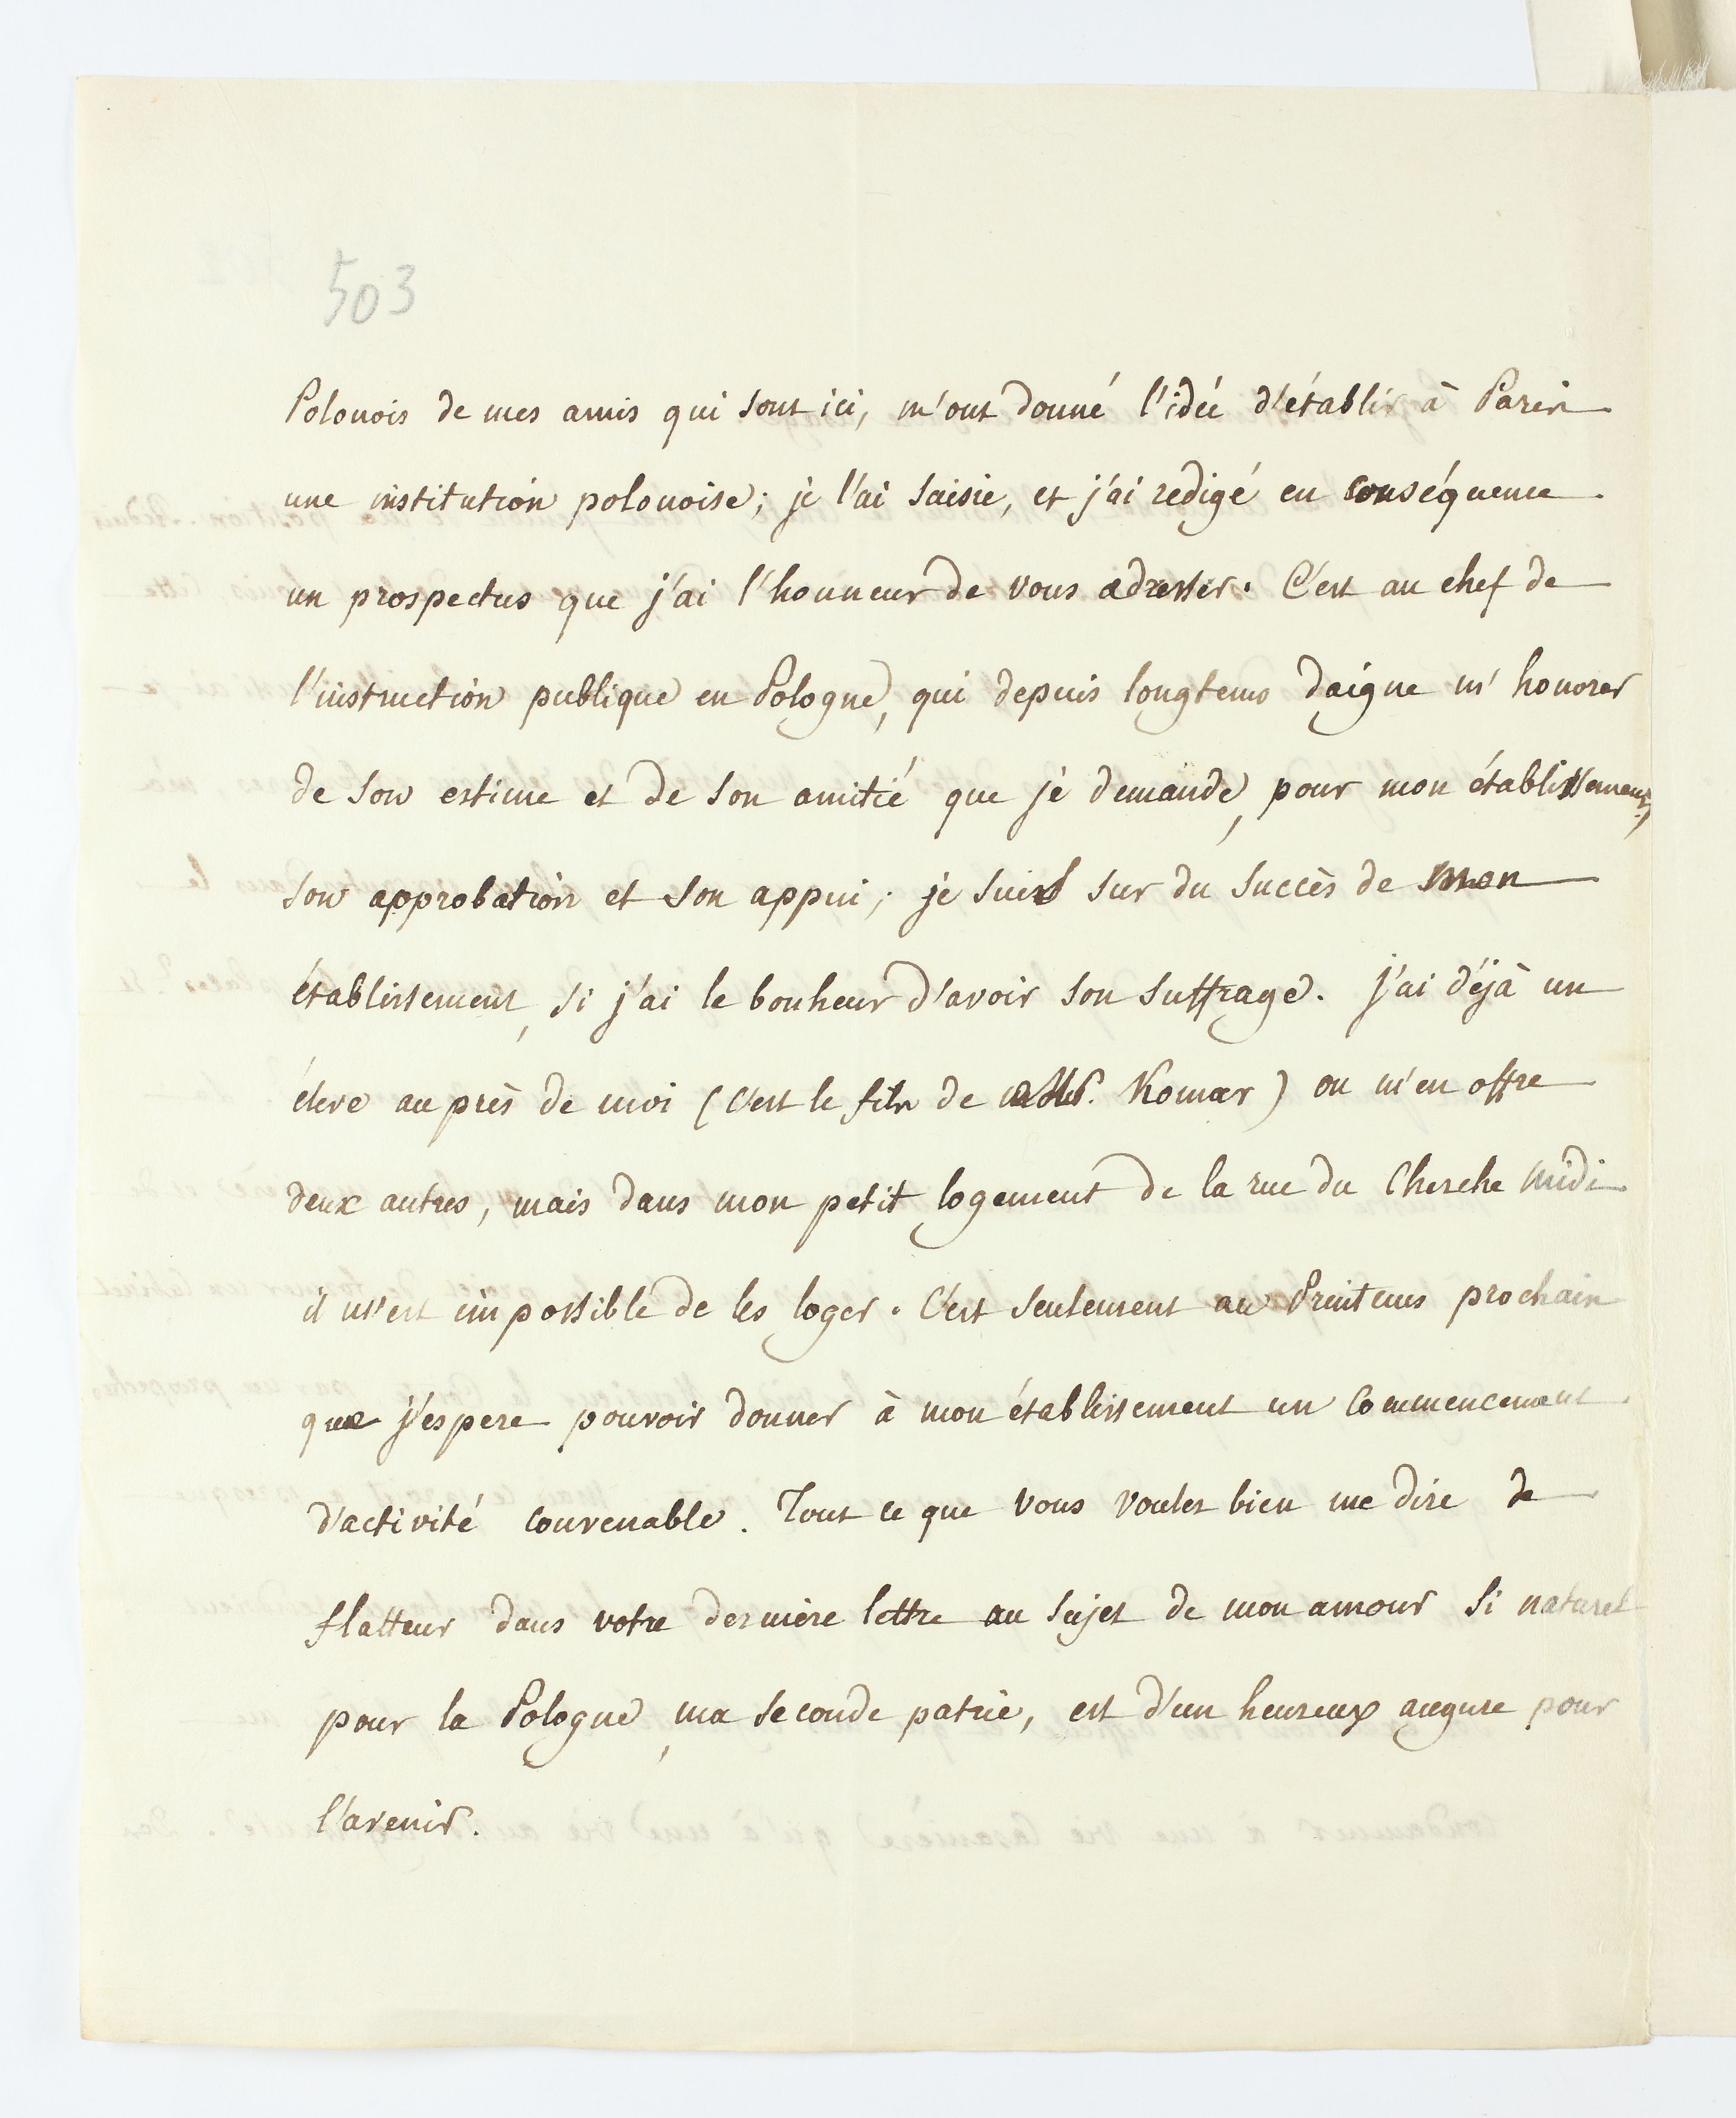 503
Polonois de mes amis qui sont ici, m'ont donné l'idée d'établir à Paris
une institution polonoise; je l'ai saisie, et j'ai redigé en conséquence
un prospectus que j'ai l'honneur de vous adresser. C'est au chef de
l'instruction publique en Pologne, qui depuis longtems daigne m'honorer
de son estime et de son amitié que je demande, pour mon établissement,
son approbation et son appui; je suis sur du succès de mon
établissement, si j'ai le bonheur d'avoir son suffrage. j'ai déjà un
éleve au près de moi (c'est le fils de Komar) on m'en offre
deux autres, mais dans mon petit logement de la rue du Cherche midi
il m'est impossible de les loger. C'est seulement au Printems prochain
que j'espere pouvoir donner à mon établissement un commencement
d'activité convenable. Tout ce que vous voulez bien me dire de
flatteur dans votre dernière lettre au sujet de mon amour si naturel
pour la Pologne, ma seconde patrie, est d'un heureux augure pour
l'avenir.